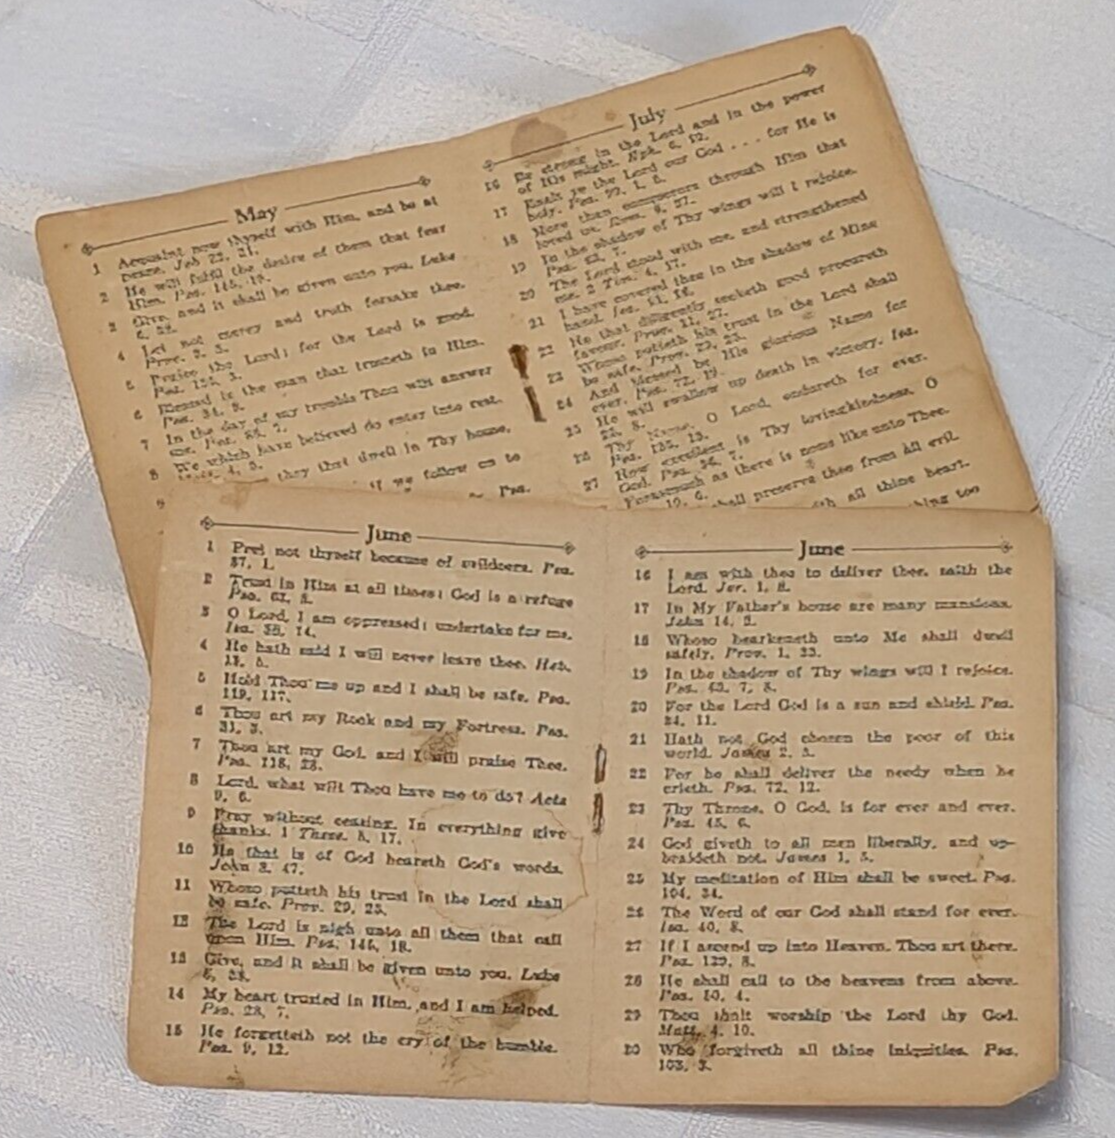 May
1 Acquaint now thyself with Him, and be at
peace. Job 22, 21.
2 He will fulfil the desire of them that fear
Him. Psa. 145, 19.
3 Give, and it shall be given unto you. Luke
6, 38.
4 Let not mercy and truth forsake thee.
Prov. 3, 3.
5 Praise the Lord; for the Lord is good.
Psa. 135, 3.
6 Blessed is the man that trusteth in Him.
Psa. 34, 8.
7 In the day of my trouble Thou wilt answer
me. Psa. 86, 7.
8 We which have believed do enter into rest.
4, 3.
9 they that dwell in Thy house.
if we follow on to
Psa.
July
16 Be strong in the Lord and in the power
of His might. Eph. 6, 10.
17 Exalt ye the Lord our God . . . for He is
holy. Psa. 99,
18 More than conquerors through Him that
loved us. Rom. 8, 37.
19 In the shadow of Thy wings will I rejoice.
Psa. 63, 7.
20 The Lord stood with me, and strengthened
me. 2 Tim. 4, 17.
21 I have covered thee in the shadow of Mine
hand. Isa. 51, 16.
22 He that diligently seeketh good procureth
favour. Prov. 11, 27.
23 Whoso putteth his trust in the Lord shall
be safe. Prov. 29, 25.
24 And blessed be His glorious Name for
ever. Psa. 72, 19.
25 He will swallow up death in victory. Isa.
25, 8.
26 Thy Name, O Lord, endureth for ever.
Psa. 135, 13.
27 How excellent is Thy lovingkindness, O
God. Psa. 36, 7.
Forasmuch as there is none like unto Thee.
10, 6.
shall preserve thee from all evil.
with all thine heart.
thing too
June
1 Fret not thyself because of evildoers. Psa.
37, 1.
2 Trust in Him at all times; God is a refuge
Psa. 62, 8.
3 O Lord, I am oppressed; undertake for me.
Isa. 38, 14.
4 He hath said I will never leave thee. Heb.
13, 5.
5 Hold Thou me up and I shall be safe. Psa.
119, 117.
6 Thou art my Rock and my Fortress. Psa.
31, 3.
7 Thou art my God, and I will praise Thee.
Psa. 118, 28.
8 Lord, what wilt Thou have me to do? Acts
9, 6.
9 Pray without ceasing. In everything give
thanks. 1 Thess. 5, 17.
10 He that is of God heareth God's words.
John 8, 47.
11 Whoso putteth his trust in the Lord shall
be safe. Prov. 29, 25.
12 The Lord is nigh unto all them that call
upon Him. Psa. 145, 18.
13 Give, and it shall be given unto you. Luke
6, 38.
14 My heart trusted in Him, and I am helped.
Psa. 28, 7.
15 He forgetteth not the cry of the humble.
Psa. 9, 12.
June
16 I am with thee to deliver thee, saith the
Lord. Jer. 1, 8.
17 In My Father's house are many mansions.
John 14, 2.
18 Whoso hearkeneth unto Me shall dwell
safely. Prov. 1, 33.
19 In the shadow of Thy wings will I rejoice.
Psa. 63, 7, 8.
20 For the Lord God is a sun and shield. Psa.
84, 11.
21 Hath not God chosen the poor of this
world. James 2, 5.
22 For he shall deliver the needy when he
crieth. Psa. 72, 12.
23 Thy Throne, O God, is for ever and ever.
Psa. 45, 6.
24 God giveth to all men liberally, and up-
braideth not. James 1, 5.
25 My meditation of Him shall be sweet. Psa.
104, 34.
26 The Word of our God shall stand for ever.
Isa. 40, 8.
27 If I ascend up into Heaven, Thou art there.
Psa. 139, 8.
28 He shall call to the heavens from above.
Psa. 50, 4.
29 Thou shalt worship the Lord thy God.
Matt. 4, 10.
30 Who forgiveth all thine iniquities. Psa.
103, 3.